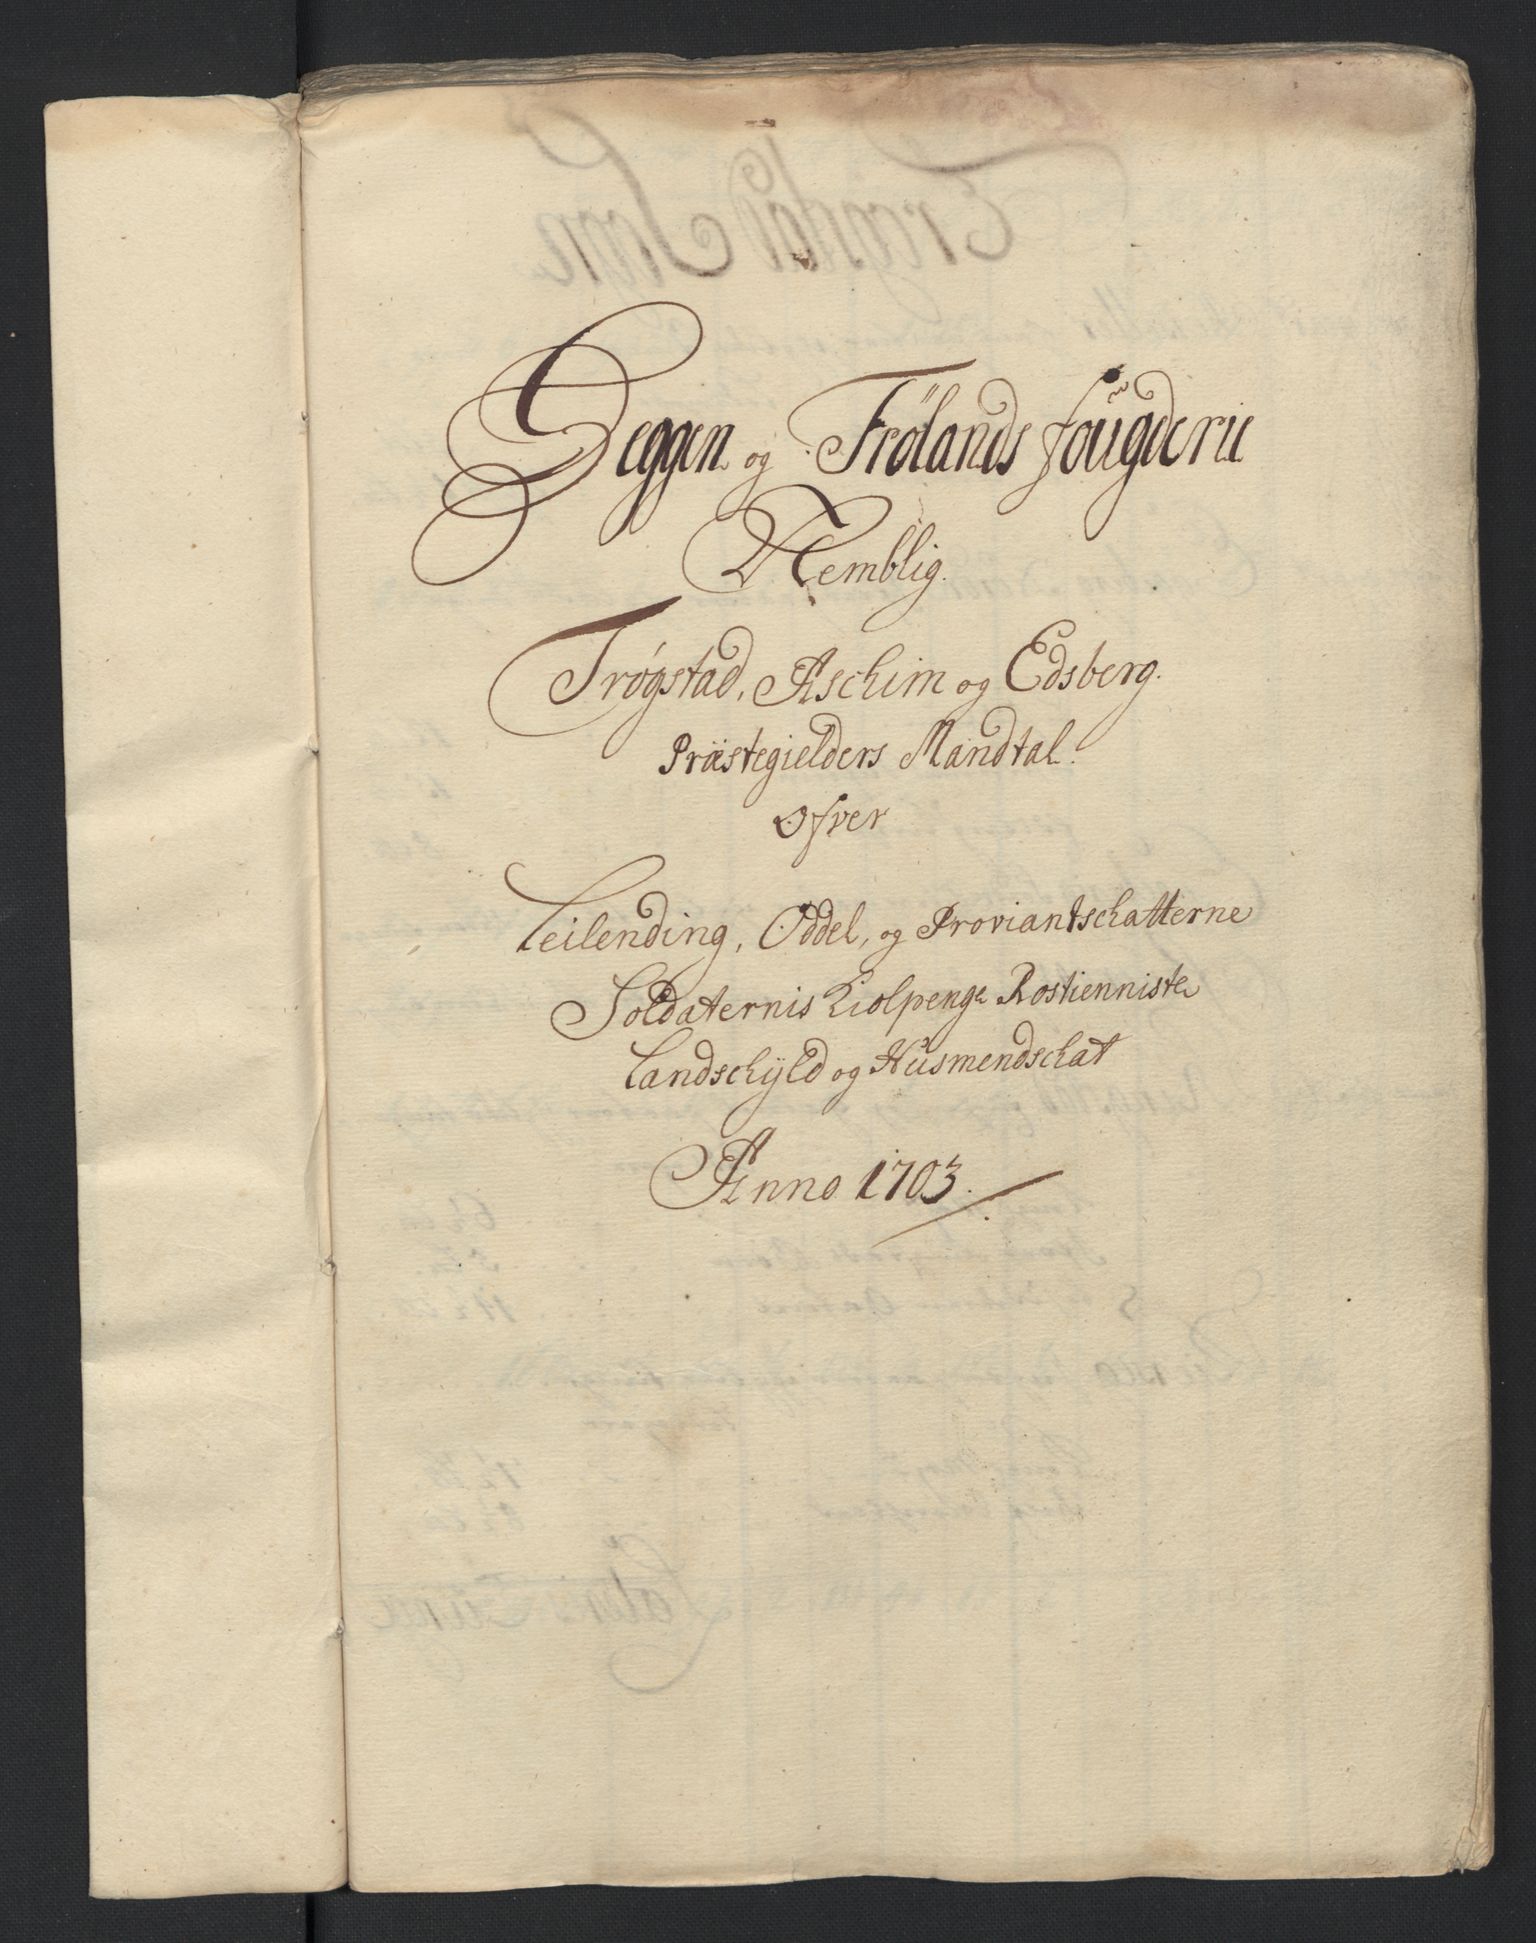 Heggen og Frölands fougderie
Nemblig.
Trøgstad, Aschim og Edsberg.
Præstegielders Mandtal.
Ofver
Leilending, Oddel, og Proviantschatterne
Soldaternis Kiolpenge Rostienniste
Landschyld og Husmendschat
Anno 1703.